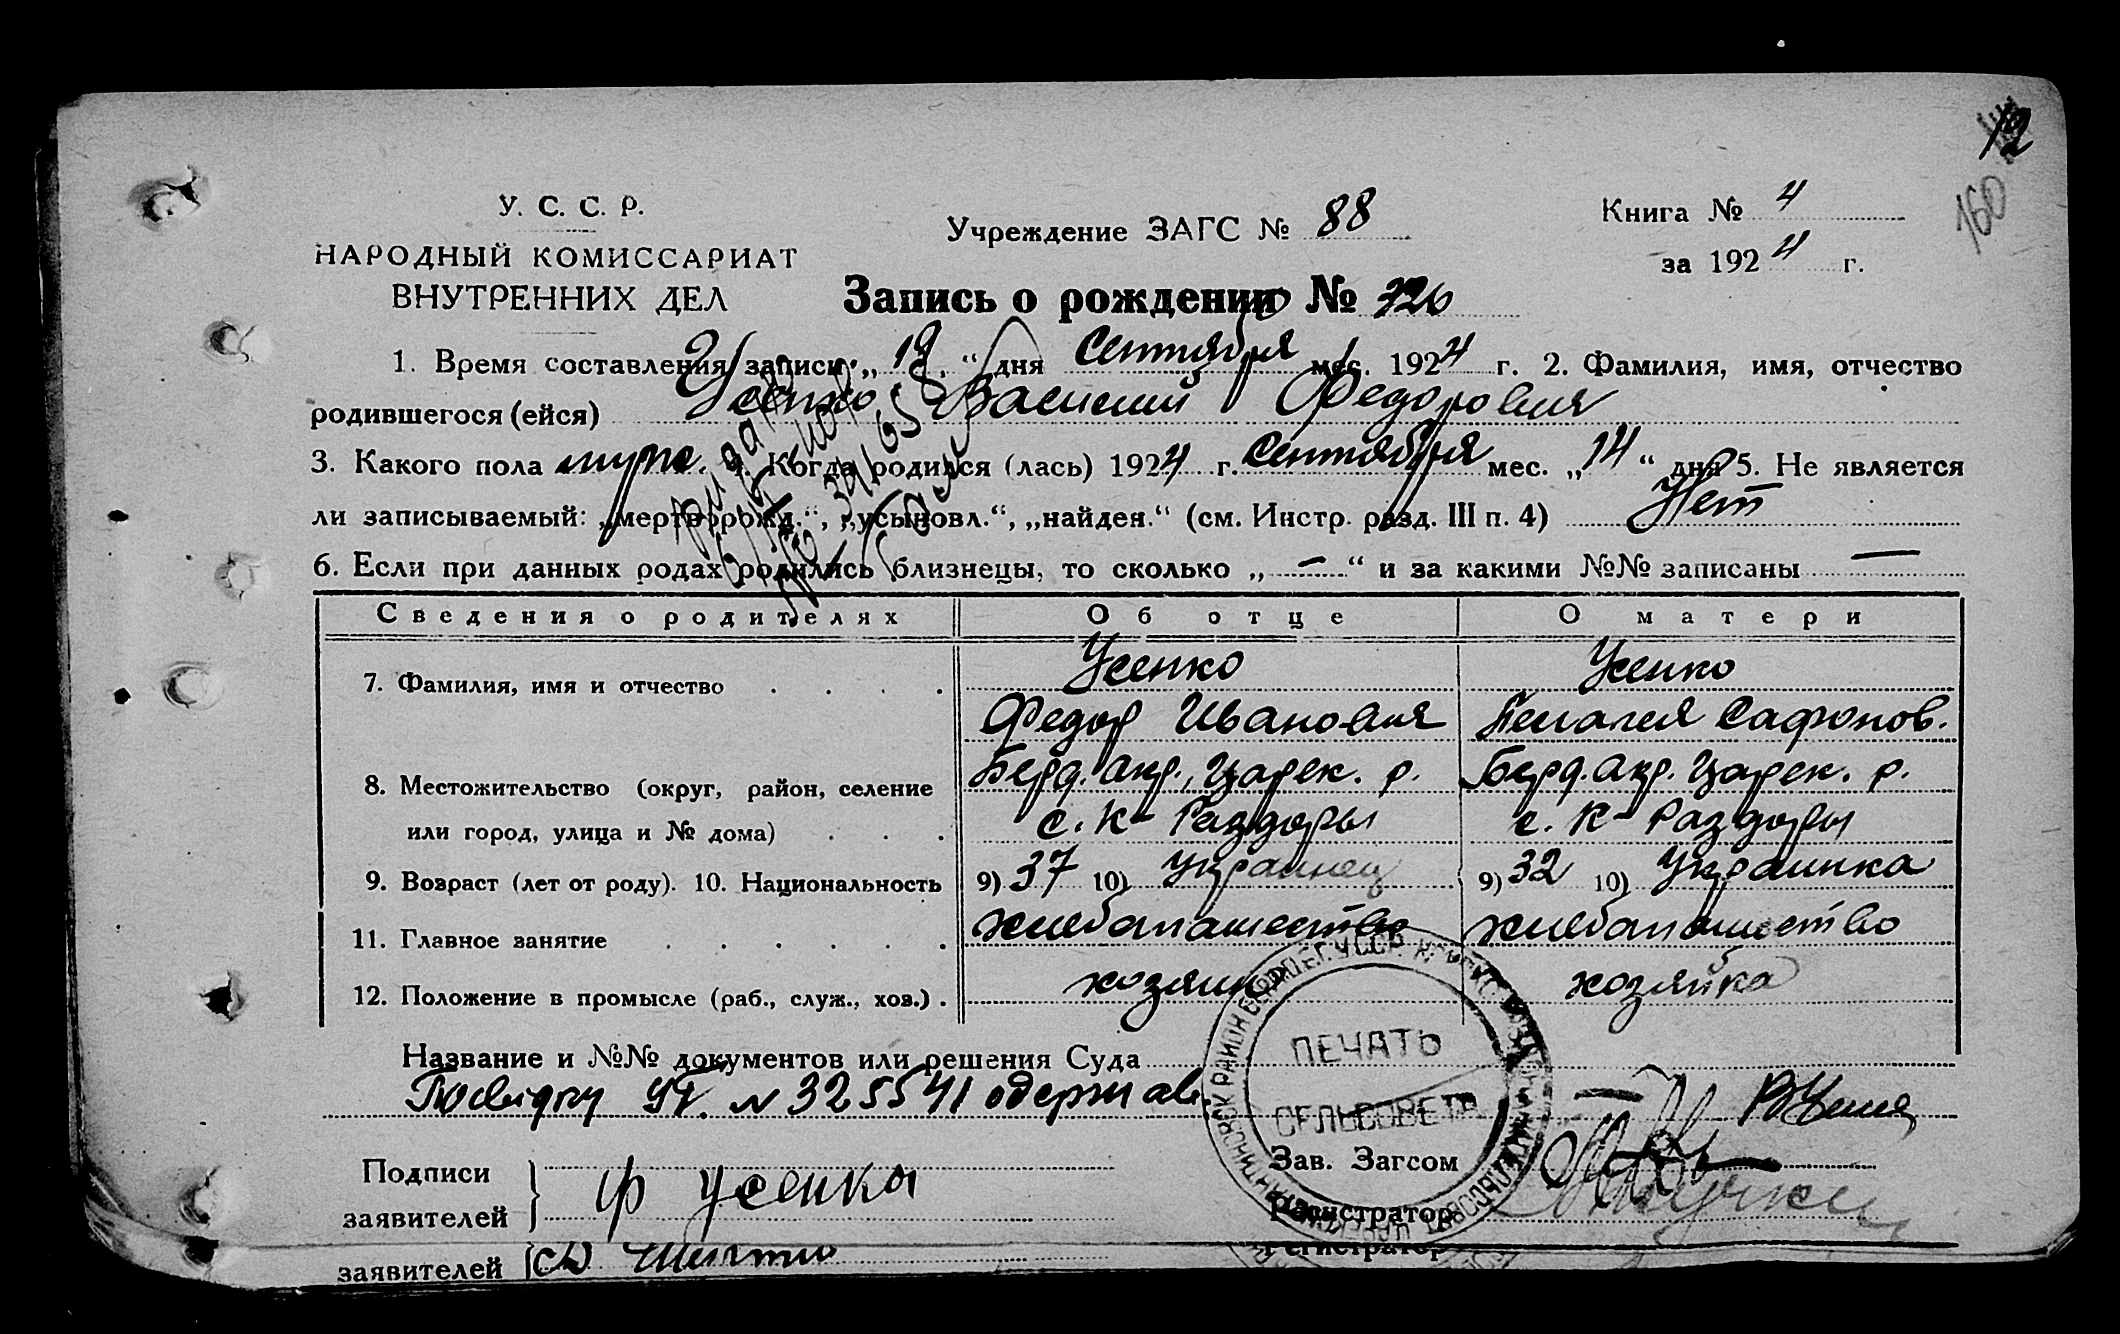 12
160
У. С. С. Р.
НАРОДНЫЙ КОМИССАРИАТ
ВНУТРЕННИХ ДЕЛ
Учреждение ЗАГС № 88
Книга № 4
за 1924 г.
Запись о рождении № 726
1. Время составления записи: „19“ дня Сентября мес. 1924 г. 2. Фамилия, имя, отчество
родившегося (ейся) Усенко Василий Федорович
3. Какого пола муж. 4. Когда родился (лась) 1924 г. Сентября мес. „14“ дня 5. Не является
ли записываемый: „мерторожд.“, „усыновл.“, „найден.“ (см. Инстр. разд. III п. 4) Нет
6. Если при данных родах родились близнецы, то сколько „—“ и за какими №№ записаны —
Сведения о родителях Об отце О матери
7. Фамилия, имя и отчество Усенко Усенко
Федор Иванович Пелагея Сафонов.
8. Местожительство (округ, район, селение Берд. окр., Царек. р. Берд. окр. Царек. р.
или город, улица и № дома) с. К-Раздоры с. К-Раздоры
9. Возраст (лет от роду). 10. Национальность 9) 37 10) Украинец 9) 32 10) Украинка
11. Главное занятие хлебопашество хлебопашество
12. Положение в промысле (раб., служ., хоз.) . хозяин хозяйка
Название и №№ документов или решения Суда
Посвідку № 325541 одержав
ПЕЧАТЬ
СЕЛЬСОВЕТА
Подписи
заявителей
Ф Усенко
Зав. Загсом
Регистратор
заявителей
Регистратор